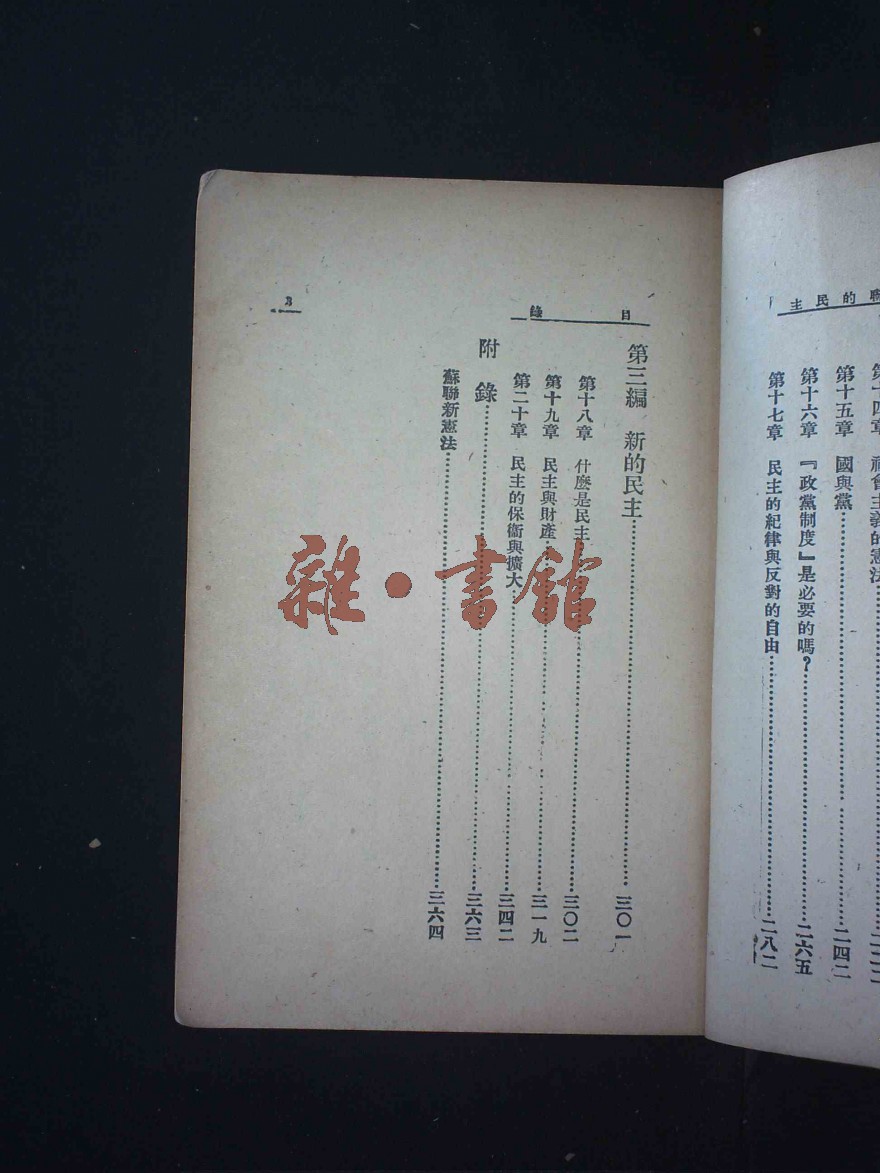 聯的民主
第十四章　社會主義的憲法
第十五章　國與黨　二四二
第十六章　『政黨制度』是必要的嗎？　二六五
第十七章　民主的紀律與反對的自由　二八二
目錄
3
第三編　新的民主　三〇一
第十八章　什麼是民主　三〇二
第十九章　民主與財產　三一九
第二十章　民主的保衛與擴大　三四二
附錄　三六三
蘇聯新憲法　三六四
雜·書館